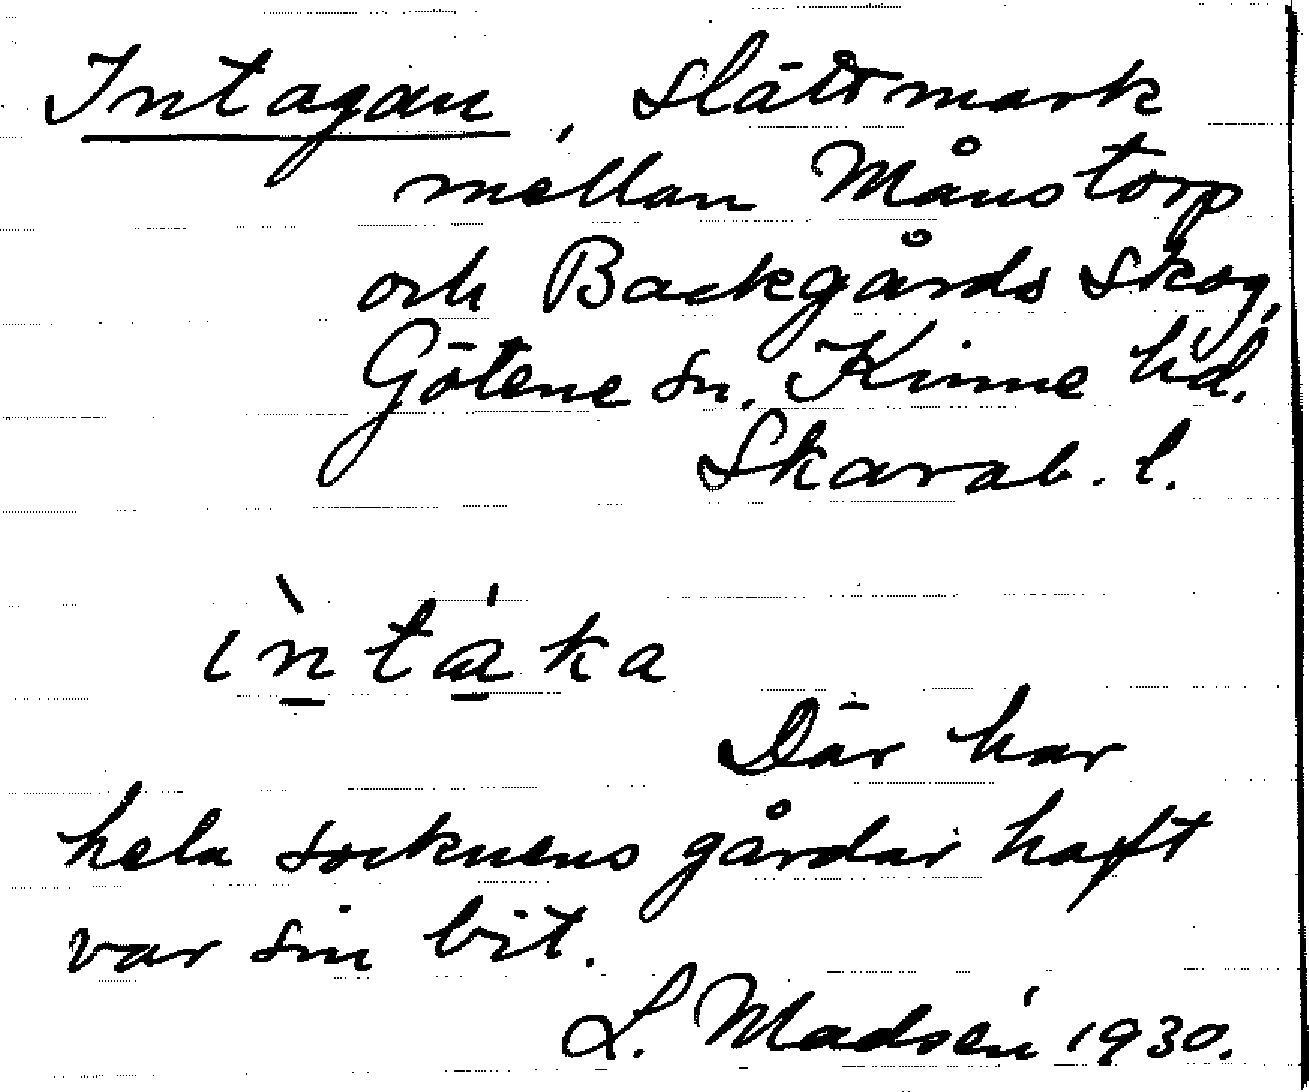 Intagan, slåttmark
mellan Månstorp
och Backgårds skog,
Götene sn. Kinne hd.
Skarab. l.
ìntáka
Där har
hela socknens gårdar haft
var sin bit.
L. Madsén 1930.